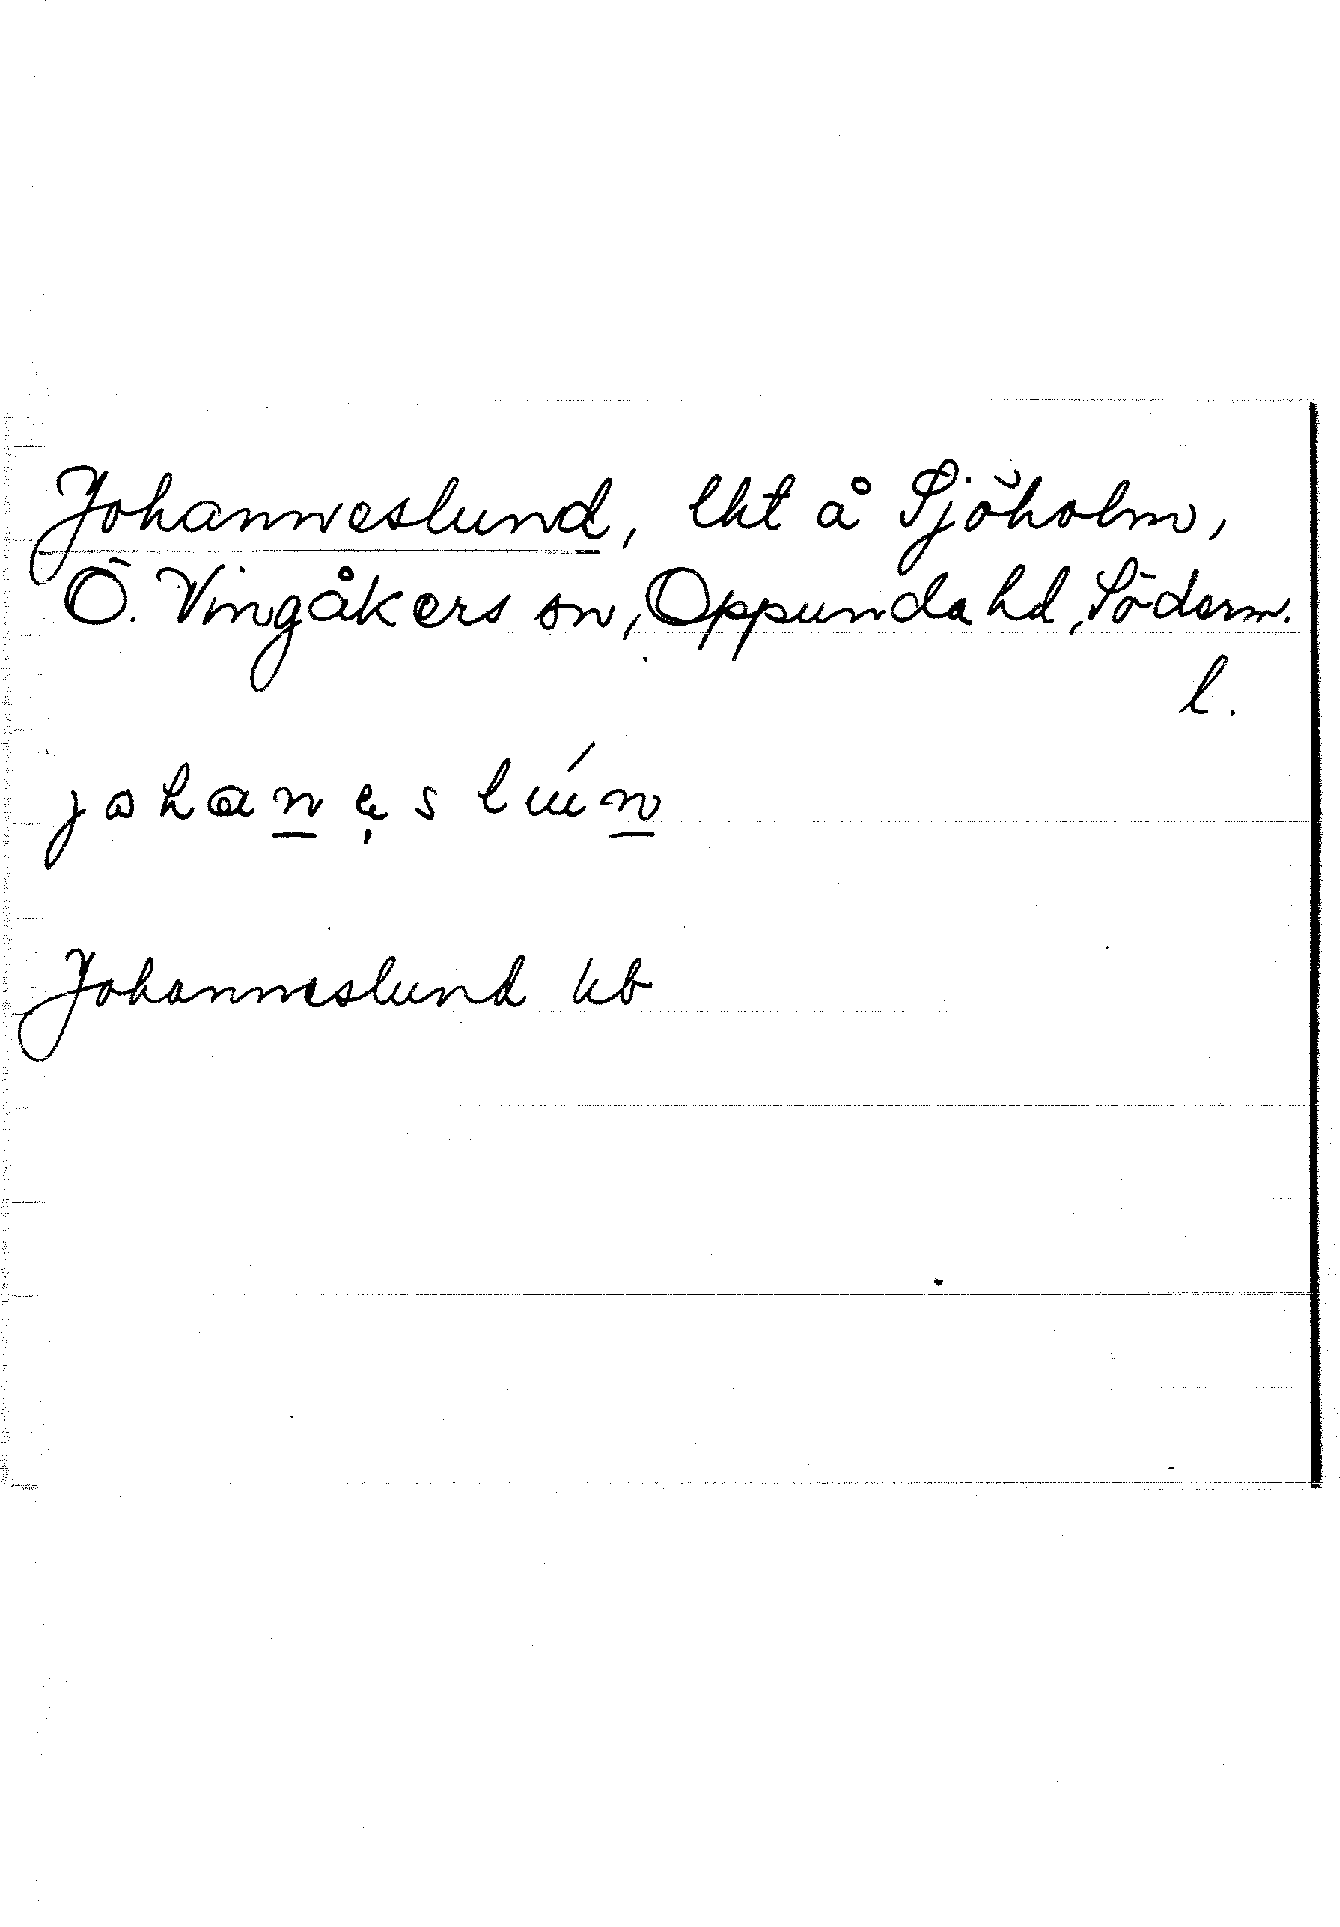 Johanneslund, lht å Sjöholm,
Ö. Vingåkers sn, Oppunda hd, Söderm.
l.
johanesluń
Johanneslund kb